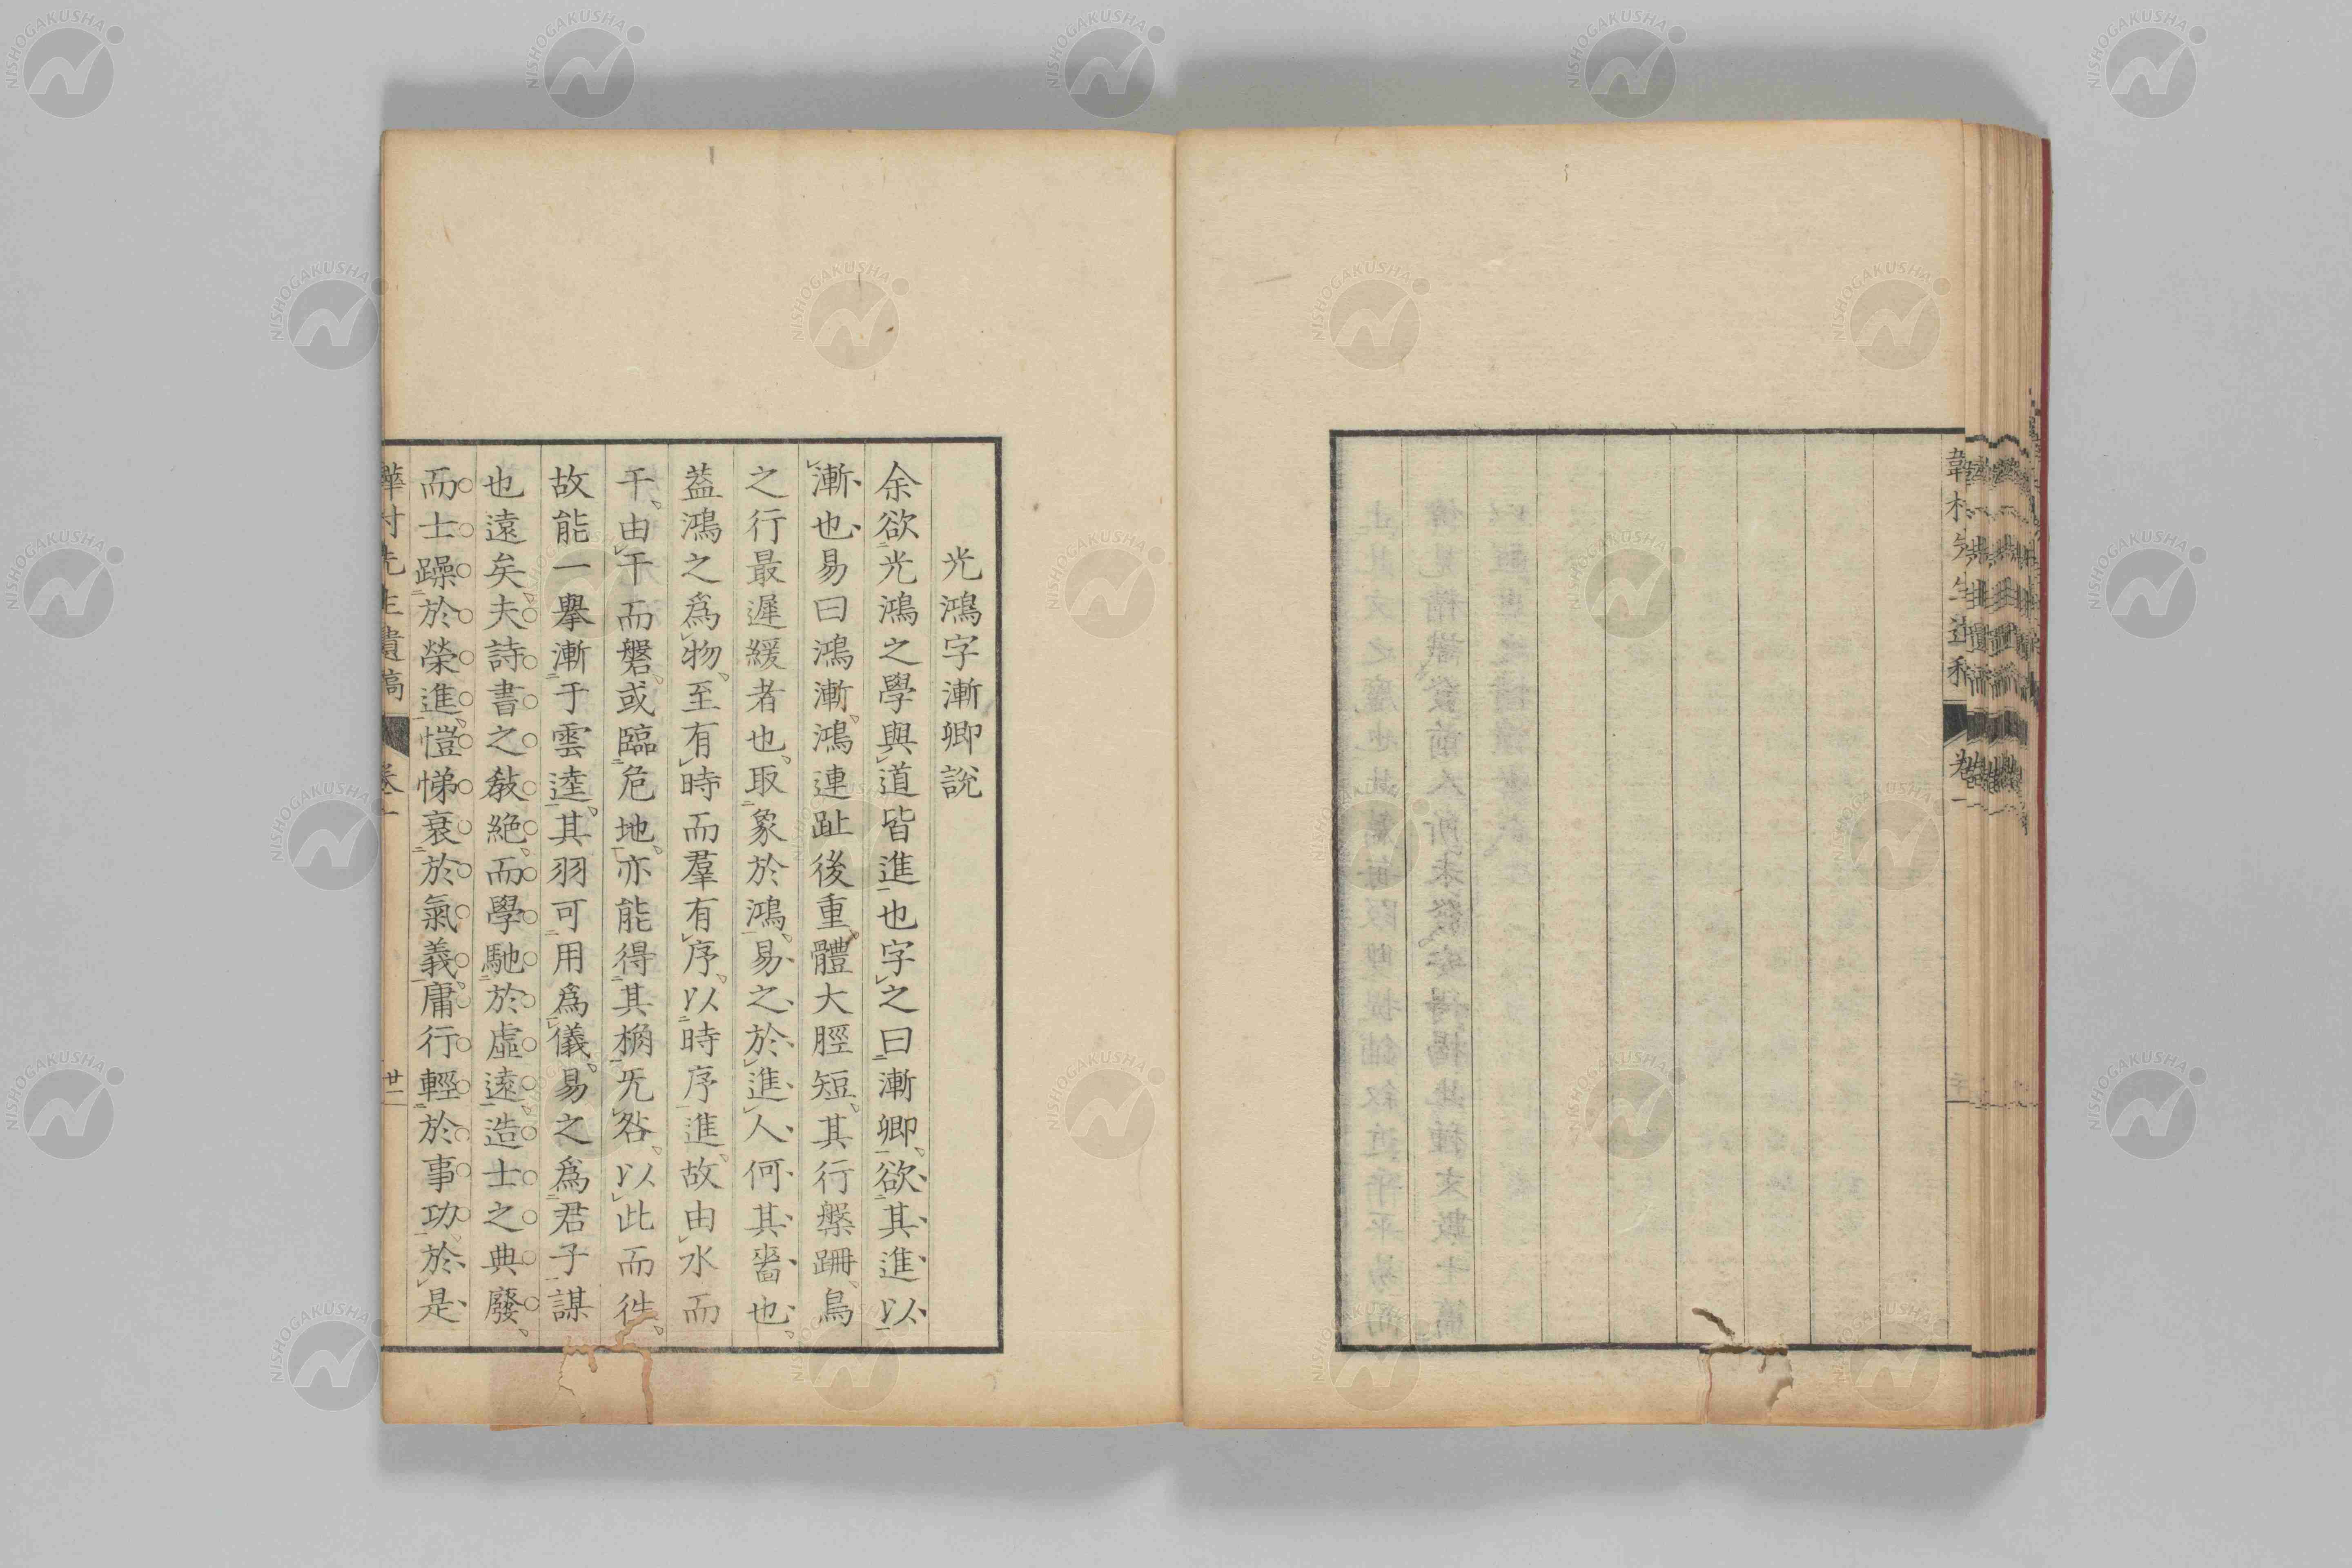 光鴻字漸卿說
余欲光鴻之學與道皆進也字之曰漸卿欲其進以
漸也易曰鴻漸鴻連趾後重體大脛短其行槃跚鳥
之行最遲緩者也取象於鴻易之於進人何其嗇也
葢鴻之爲物至有時而羣有序以時序進故由水而
干由干而磐或臨危地亦能得其桷旡咎以此而徃
故能一擧漸于雲逵其羽可用爲儀易之爲君子謀
也遠矣夫詩書之敎絶而學馳於虛遠造士之典廢
而士躁於榮進愷悌衰於氣義庸行輕於事功於是
韡村先生遺稿 卷一 廿一
NISHOGAKUSHA